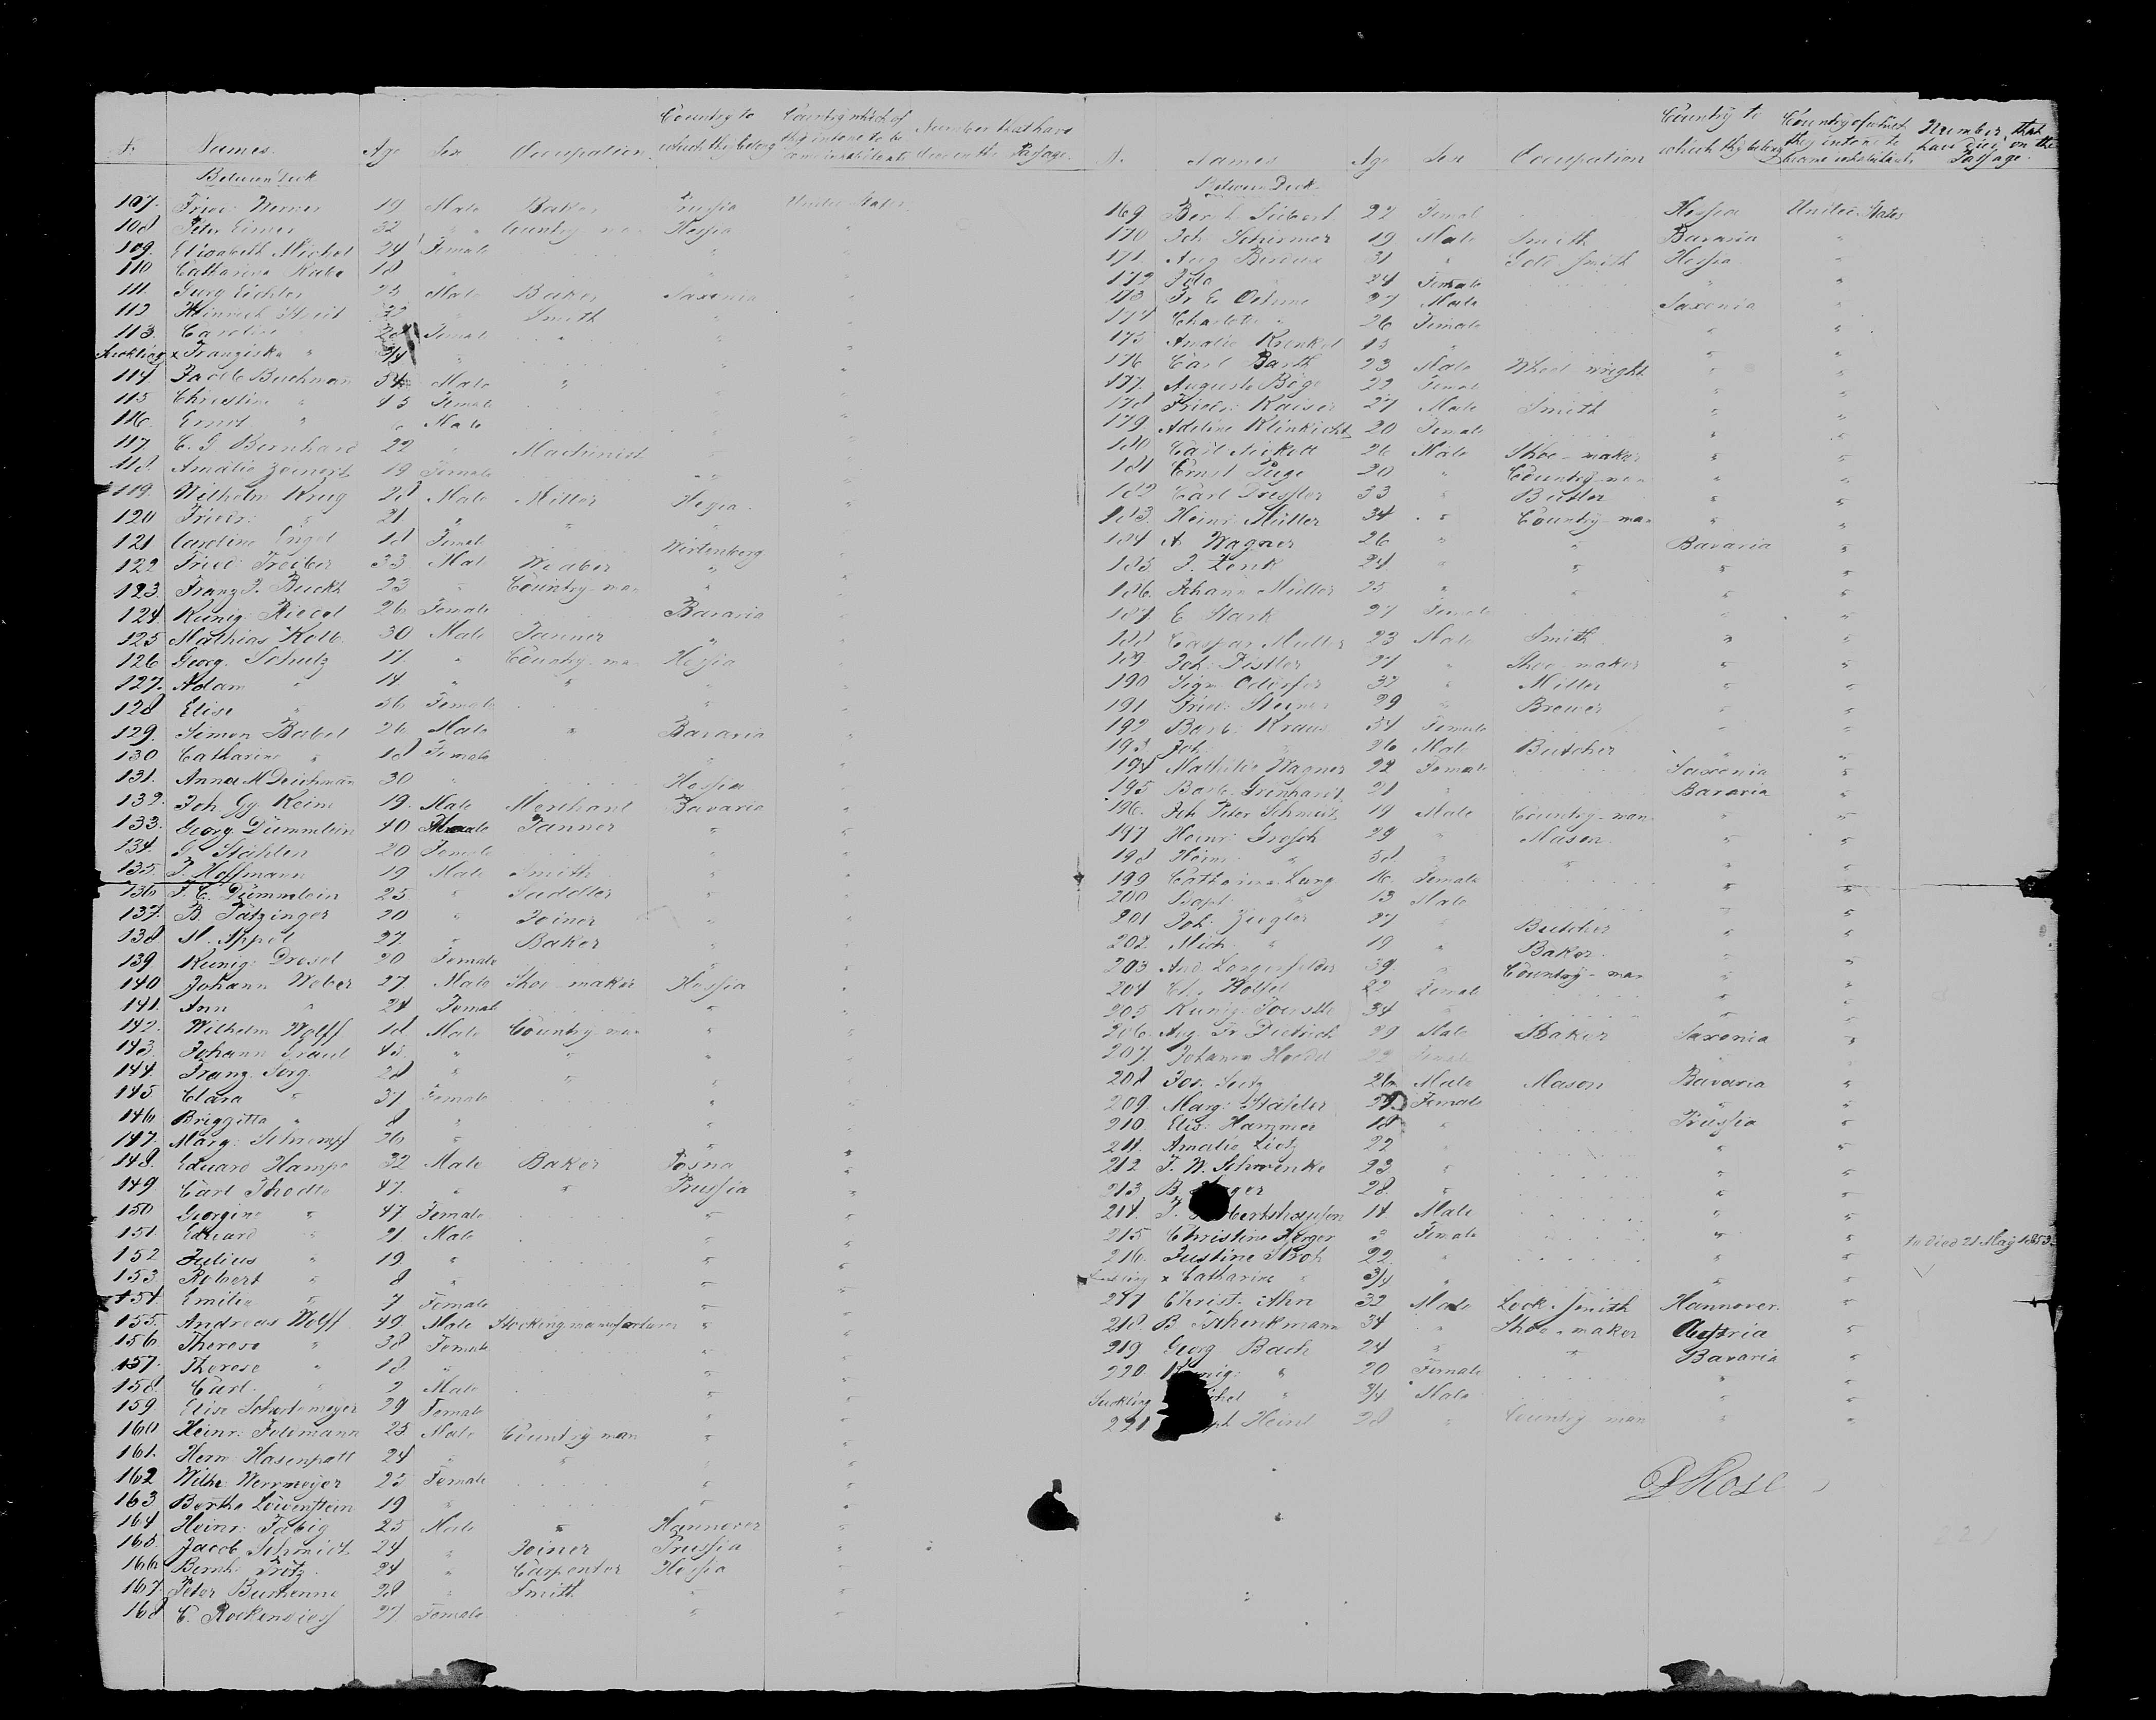 No. Names. Age Sex Occupation. Country to which they belong Country which of they intend to become inhabitants Number that have died on the Passage.
Between Deck
107. Fried: Werner 19 Male Baker Prussia United States
108 Peter 32 " Country-man Hessia "
109. Elisabeth Michel 24 Female "
110 Catharina Rabe 18 "
111. Georg Eichler 23 Male Baker Saxonia "
112 Heinrich 32 " Smith " "
113. Caroline " 28 Female " "
Suckling x Franziska " 3/4 " " "
114 Jacob Buchman 54 Male " "
115 Christine " 45 Female "
116. Ernst " 6 Male "
117. C. G. Bernhard 22 " Machinist " "
118. Amalie 19 Female " "
119. Wilhelm Krug 28 Male Miller Hessia. "
120 Friedr: " 21 " " "
121 Caroline Engel 18 Female Wirtemberg "
122 Fried: Treiber 33 Male Weaber " "
123. Franz J. Buckt 23 " Country-man " "
124 Kunig: Riedel 26 Female Bavaria "
125 Mathias Kolb. 30 Male Tanner " "
126 Georg. Schutz 17 " Country-man Hessia "
127. Adam " 14 " " " "
128 Elise " 36 Female " "
129. Simon Babel 26 Male " Bavaria "
130 Catharine " 18 Female " "
131. Anna M Deichmañ 30 " Hessia "
132. Joh. Gg. Keim 19. Male Merchant Bavaria "
133. Georg. Dümmlein 40 Male Tanner " "
134. G. Stählen 20 Female " "
135. J. Hoffmann 19 Male Smith " "
136 J. C. Dümmlein 25 " Saddler " "
137. B. Pätzinger 20 " Joiner " "
138 M. Appel 27. " Baker " "
139 Kunig: Dresel 20 Female " "
140 Johann Weber 27 Male Shoe-maker Hessia "
141. Ann " 24 Female " "
142. Wilhelm Wolff 18 Male Country-man " "
143. Johann Traut 45 " " " "
144. Franz Sorg. 28 " " " "
145 Clara " 37 Female " "
146 Briggitta " 8 " " "
147. Marg: Schrempf 26 " " "
148. Eduard Hampe 32 Male Baker Posna "
149 Carl Thodte 47. " " Prussia "
150 Georgine " 47 Female " "
151. Eduard " 21 Male " "
152 Julius " 19. " " "
153. Robert " 8 " " "
154. Emilie " 7 Female " "
155. Andreas Wolff 49. Male Stocking manufacturer " "
156. Therese " 38 Female " "
157. Therese " 18 " " "
158. Carl " 2 Male " "
159 Elise 29 Female " "
160 Heinr: Feldmann 25 Male Country-man " "
161. Herm Hasenpatt 24 " " " "
162 Wilhe: Werrmeyer 25 Female " "
163 Berthe Löwenstein 19 " " "
164 Heinr: Fabig 25 Male " Hannover "
165. Jacob Schmidt 24 " Joiner Prussia "
166 Bernh. Trotz 24 " Carpenter Hessia "
167 Peter Buchenne 28 " Smith " "
168 C. Rockendiess 27 Female " "
No. Names Age Sex Occupation Country to which they belong Country of which they intend to become inhabitants Number, that have died on the Passage.
Between Deck
169 Siebert 22 Female Hessia United States
170 Joh: Schirmer 19 Male Smith Bavaria "
171. Aug 31 " Gold-smith Hessia "
172 24 Female " "
173 Fr. E. Oehme 27 Male Saxonia "
174 Charlotte " 26 Female " "
175 Amalie Krenkel 15 " " "
176 Carl Barth 23 Male Wheel wright " "
177. Auguste Böge 22 Female " "
178 Friedr: Kaiser 27 Male Smith " "
179 Adeline Klinkicht 20 Female " "
180 Carl Nickell 26 Male Shoe-maker " "
181 Ernst 20 " Country-man " "
182 Carl Dressler 33 " Butler " "
183. Heinr: Müller 34 " Country-man " "
184 A. Wagner 26 " " Bavaria "
185 J. Zenk 24 " " " "
186. Johann Müller 25 " " " "
187. E Stark 27 Female " "
188 Caspar Müller 23 Male Smith " "
189 Joh: Distler 27 " Shoe-maker " "
190 Sigm. 32 " Miller " "
191 Fried: Steiner 29 " Brewer " "
192 Barb: Kraus 34 Female " "
193 Joh. " 26 Male Butcher " "
194 Mathilde Wagner 22 Female Saxonia "
195 Barb. 21 " Bavaria "
196. Joh Peter Schmidt 19 Male Country-man " "
197 Heinr: Grosch 29 " Mason " "
198 Heinr " 58. " " " "
199 Catharina Lang 16. Female " "
200 Bapt: " 13 Male " "
201 Joh: Ziegler 27 " Butcher " "
202. Mich " 19 " Baker. " "
203 And. Langerfelder 39. " Country-man " "
204 22 Female " "
205 Kunig: 34 " " "
206. Aug. Fr. Dietrich 29 Male Baker Saxonia "
207. Johanne 22 Female " "
208 Jos. Seitz 26 Male Mason Bavaria "
209. Marg: Stähler 27. Female " "
210 Elis: Hammer 18 " Prussia "
211. Amalie Lietz 22 " " "
212 F. W. Schwenke 23. " " "
213 B. 28. " " "
214. J. 14 Male " "
215 Christine 2 Female " "
216. Justine 22. " " "
Suckling x Catharine " 3/4 " " " died 21 May 1853.
217 Christ. Ahn 32 Male Lock-smith Hannover. "
218. B. 34 " Shoe-maker Austria "
219 Georg Bach 24 " " Bavaria "
220 " 20 Female " "
Suckling " 3/4 Male " "
221 Heinl 28 " Country-man " "
Rose
221